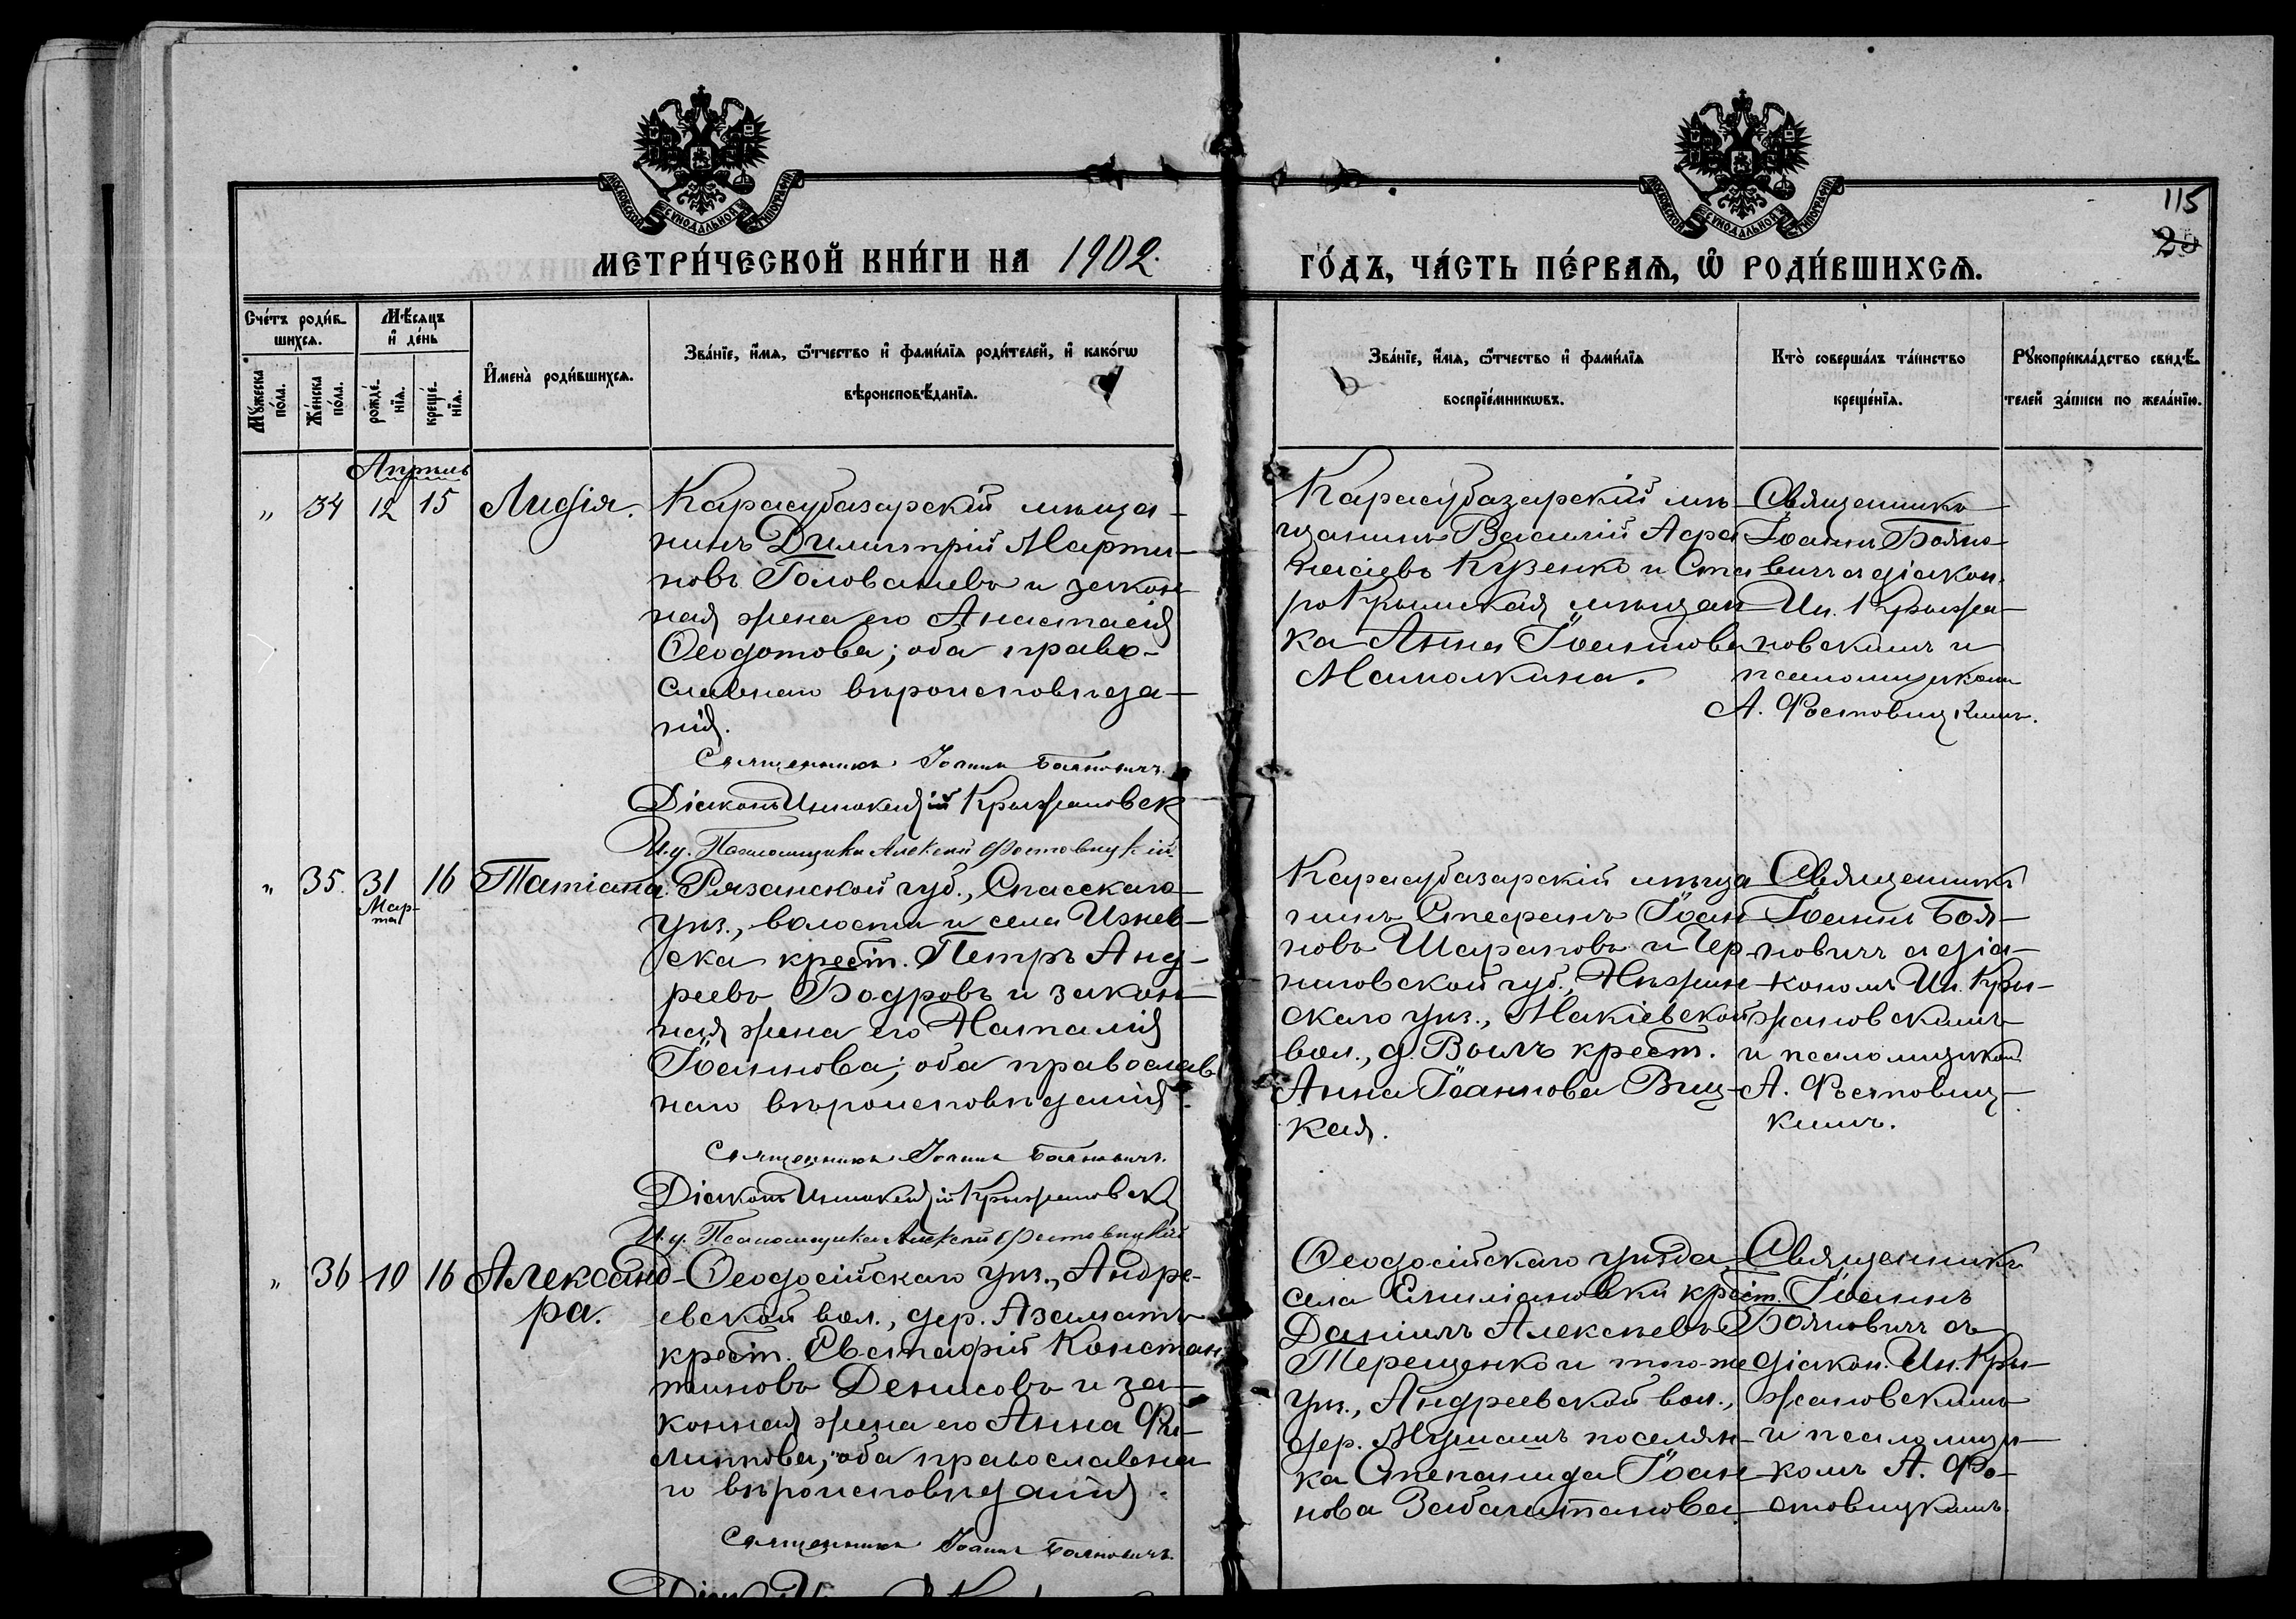 МОСКОВСКОЙ СѴНОДАЛЬНОЙ ТИПОГРАФІИ
МОСКОВСКОЙ СѴНОДАЛЬНОЙ ТИПОГРАФІИ
115
25
МЕТРИ́ЧЕСКОЙ КНИ́ГИ НА 1902.
ГО́ДЪ, ЧА́СТЬ ПЕ́РВАѦ, Ѡ҆ РОДИ́ВШИХСѦ.
Сче́тъ роди́в-
шихсѧ.
Мѣ́сѧцъ
и҆ де́нь
Мꙋ́жеска по́ла.
Же́нска по́ла.
рожде́-
нїѧ.
креще́-
нїѧ.
И҆мена̀ роди́вшихсѧ.
Зва́нїе, и҆́мѧ, ѻ҆́тчество и҆ фами́лїѧ роди́телей, и҆ како́гѡ
вѣроисповѣ́данїѧ.
Зва́нїе, и҆́мѧ, ѻ҆́тчество и҆ фами́лїѧ
воспрїе́мникѡвъ.
Кто̀ соверша́лъ та́инство
креще́нїѧ.
Рꙋкоприкла́дство свидѣ́-
телей за́писи по жела́нїю.
Апрѣль
„ 34 12 15 Лидія.
Карасубазарскій мѣща-
нинъ Димитрій Марти-
новъ Головачевъ и закон-
ная жена его Анастасія
Ѳеодотова; оба право-
славнаго вѣроисповѣда-
нія.
Священникъ Іоаннъ Бояновичъ.
Діаконъ Иннокентій Крыжановск
И.д. Псаломщика Алексій Фостовицкій.
Карасубазарскій мѣ-
щанинъ Василій Афа
насіевъ Кузенко и Ста
рокрымская мѣщан
ка Анна Іоаннова
Мамалкина.
Священникъ
Іоаннъ Бояно-
вичъ съ діакон.
Ин. Крыжа-
новскимъ и
псаломщикомъ
А. Фостовицкимъ.
„ 35. 31 Мар-
та 16 Татіана.
Рязанской губ., Спасскаго
уѣз., волости и села Ижев-
ска крест. Петръ Анд-
реевъ Бодровъ и закон-
ная жена его Наталія
Іоаннова; оба православ
наго вѣроисповѣданія.
Священникъ Іоаннъ Бояновичъ.
Діаконъ Иннокентій Крыжановск
И.д. Псаломщика Алексій Фостовицкій
Карасубазарскій мѣща
нинъ Стефанъ Іоан
новъ Шараповъ и Чер
ниговской губ., Нѣжин
скаго уѣз., Макіевской
вол., д. Вомъ крест.
Анна Іоаннова Виц-
кая.
Священникъ
Іоаннъ Боя-
новичъ съ діа-
кономъ Ин. Кры-
жановскимъ
и псаломщиком
А. Фостовиц-
кимъ.
„ 36 10 16 Александ-
ра.
Ѳеодосійскаго уѣз., Андре-
евской вол., дер. Азаматъ
крест. Евстафій Констан
тиновъ Денисовъ и за-
конная жена его Анна Фи-
липпова; оба православна-
го вѣроисповѣданія.
Священникъ Іоаннъ Бояновичъ.
Ѳеодосійскаго уѣзда,
села Емиліановки крест.
Даніилъ Алексѣевъ
Терещенко и того-же
уѣз., Андреевской вол.,
дер. Мушашъ поселян-
ка Степанида Іоан
нова Забаштанова
Священникъ
Іоаннъ
Бояновичъ съ
діакон. Ин. Кры-
жановскимъ
и псаломщи-
комъ А. Фо-
стовицкимъ.